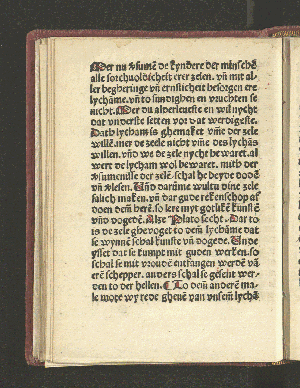 Mer nu vsumē de kyndere der minschē
alle sorchuoldicheit erer zelen. vn̄ mit al
ler begheringe vn̄ ernsticheit besorgen ere
lychāme. vn̄ to sundighen en vruchten se
nicht. Mer du alderleueste en wil nycht
dat vnderste setten vor dat werdigeste.
Dat lycham is ghemaket vm̄e der zele
willē. mer de zeele nicht vm̄e des lychās
willen. vn̄d we de zele nycht bewaret. al
wert de lycham wol bewaret. mith der
vsumenisse der zelē. schal he beyde doden
vn̄ vlesen. Un̄d darum̄e wultu dine zele
salich maken. vn̄ dar gude rekenschop af
doen dem̄ herē. so lere myt gotlikē kunstē
vn̄d dogedē. Alze Plato secht. Dar to
is de zele ghevoget to dem̄ lychāme dat
se wynnē schal kunste vn̄ dogede. Unde
ysset dat se kumpt mit guden werken. so
schal se mit vroudē entfangen werdē vā
erē schepper. anders schal se gesent wer-
den to der hellen. To dem̄ anderē ma-
le mote wy rede gheuē van vnsem̄ lychā